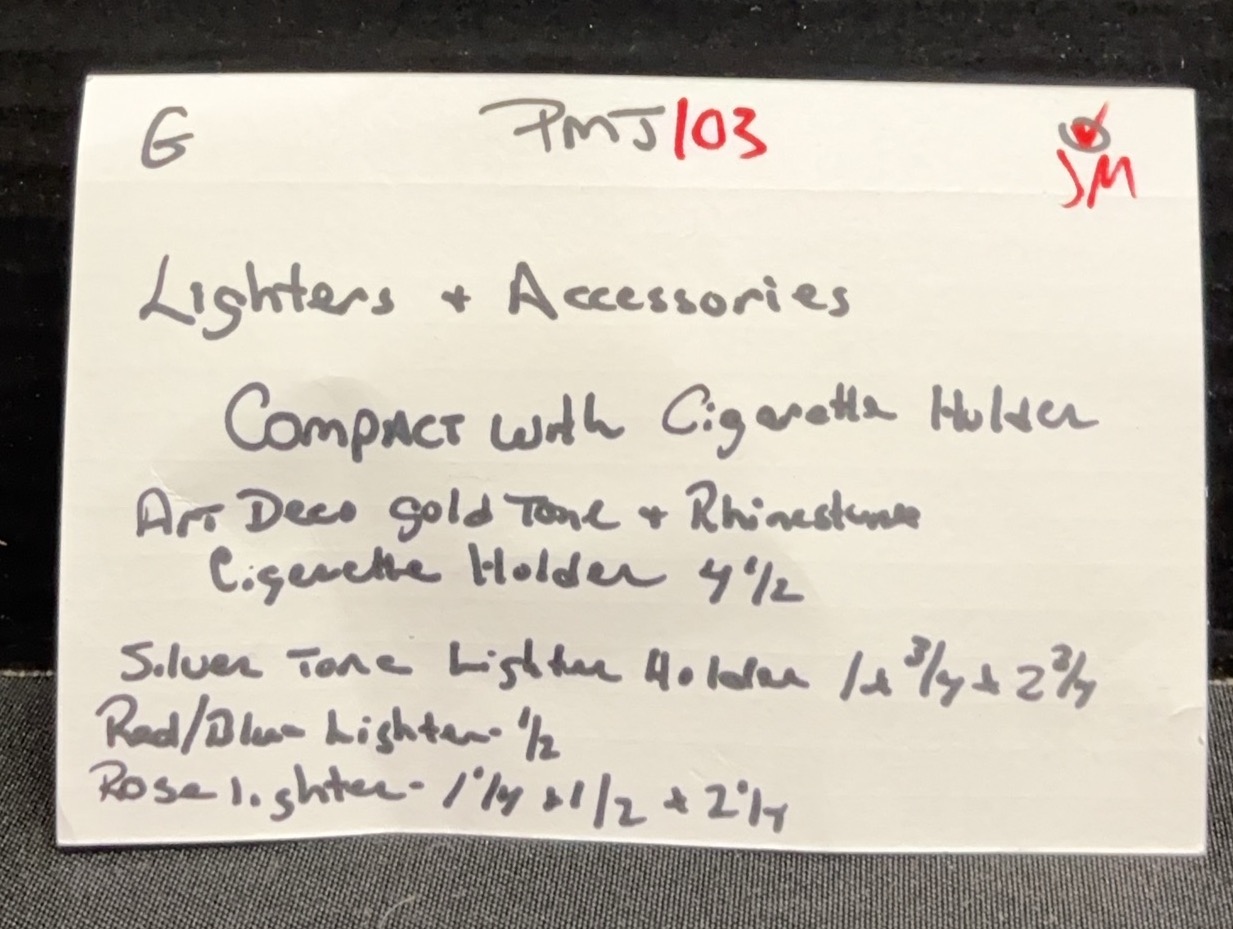 G PMJ/03 JM
Lighters + Accessories
Compact with Cigarette Holder
Art Deco gold Tone + Rhinestone
Cigarette Holder 4 1/2
Silver Tone Lighter Holder 1 x 3/4 x 2 3/4
Red/Blue Lighter - 1/2
Rose lighter - 1 1/4 x 1/2 x 2 1/4